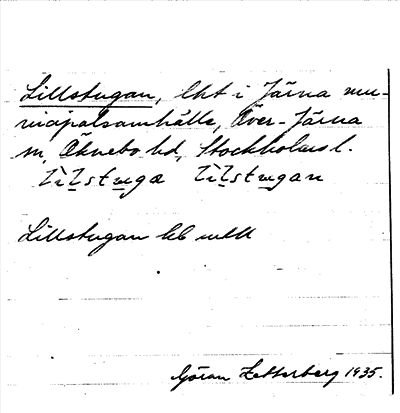 Lillstugan, lht i Järna mu-
nicipalsamhälle, Över-Järna
sn, Öknebo hd, Stockholms l.
lìlstuga lìlstugan
Lillstugan
Göran Zetterberg 1935.